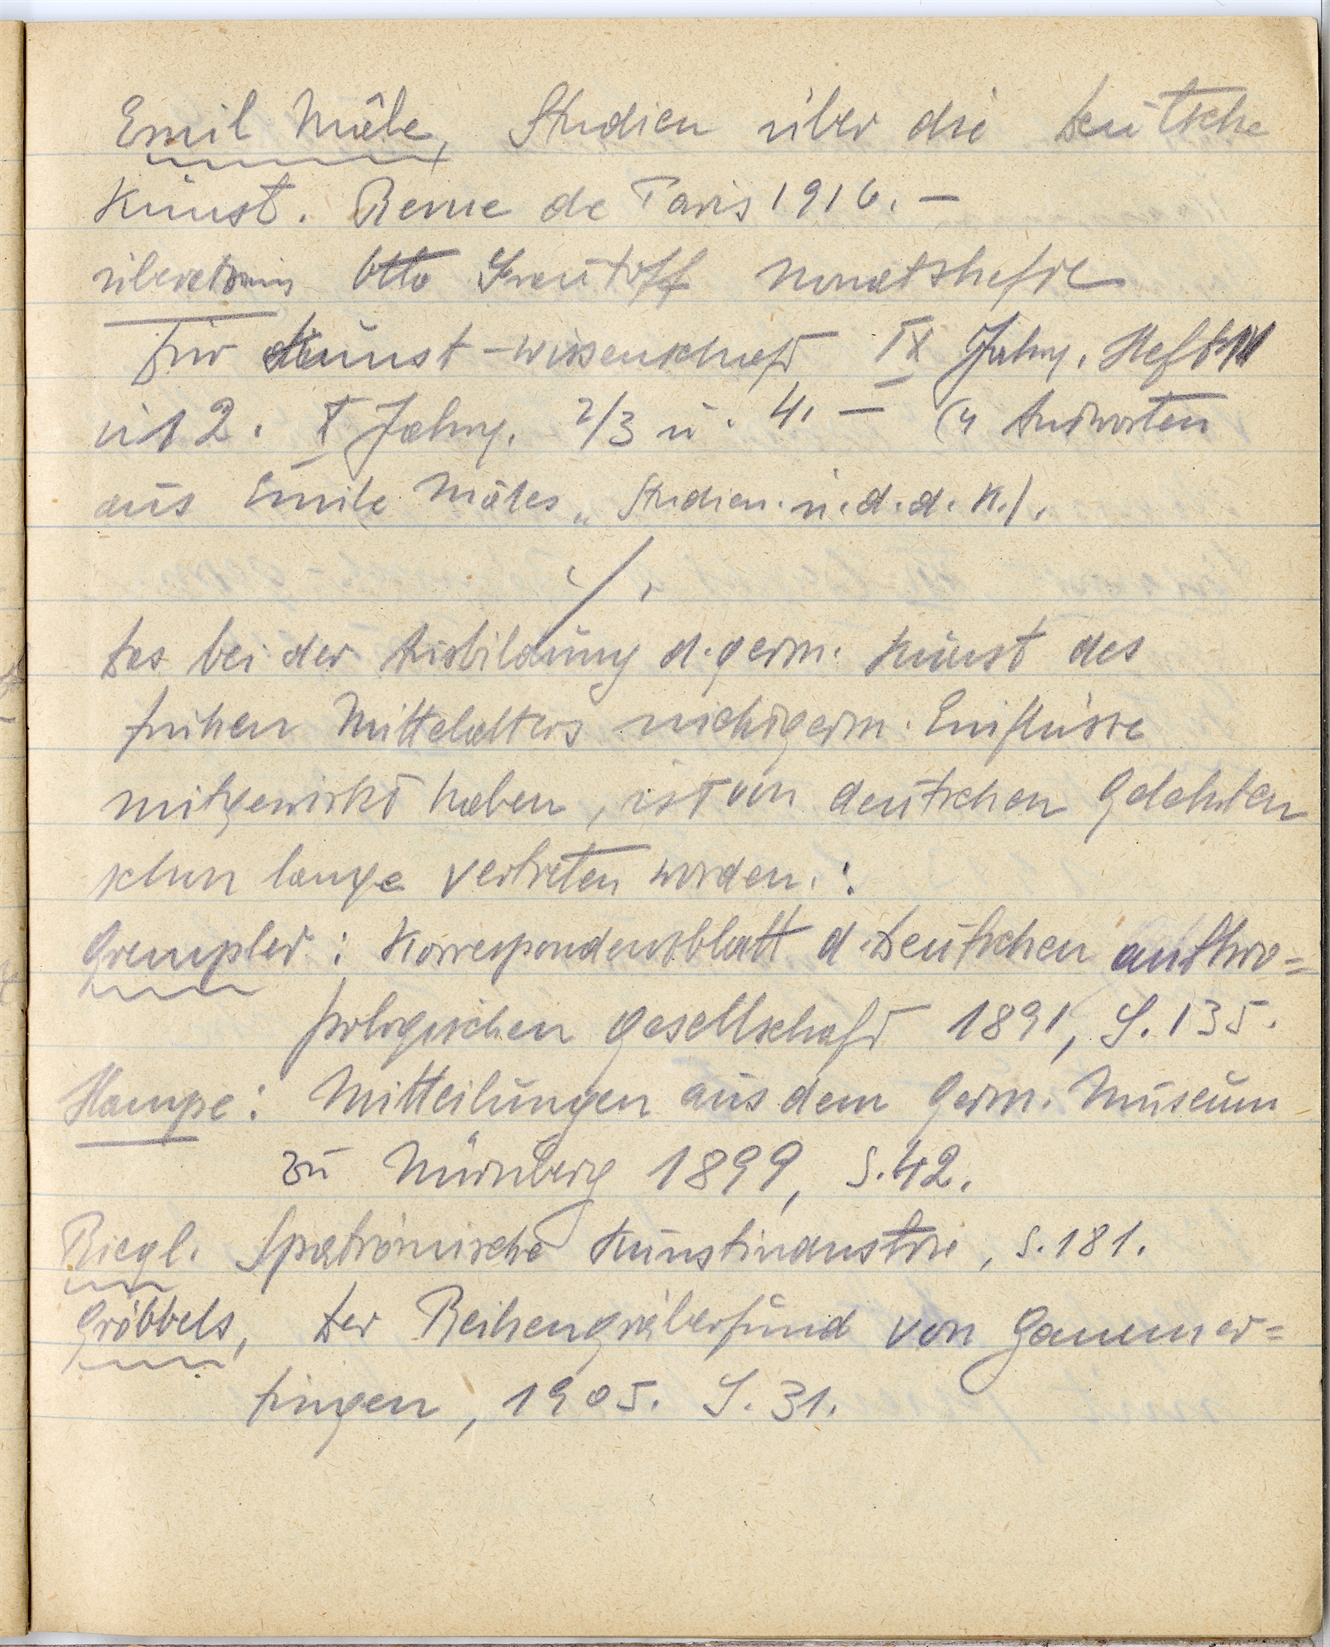 Emil Mâle, Studien über die Deutsche
Kunst. Revue de Paris 1916. –
Otto Grautoff Monatshefte
für Kunst-wissenschaft IX Jahrg. Heft 11
u 12. X Jahrg. 2/3 u. 4. – (4 Antworten
aus Emile Mâles „Studien. ü. d. d. K.).
./.
Das bei der Ausbildung d. germ. Kunst des
frühen Mittelalters nichtgerm. Einflüsse
mitgewirkt haben, ist von deutschen Gelehrten
schon lange vertreten worden. :
Grempler: Korrespondenzblatt d. Deutschen anthro=
pologischen gesellschaft 1891, S. 135.
Hampe: Mitteilungen aus dem Germ. Museum
zu Nürnberg 1899, S. 42.
Riegl. Spätrömische Kunstindustrie, S. 181.
Gröbbels, Der Reihengräberfund von Gammer=
tingen, 1905. S. 31.